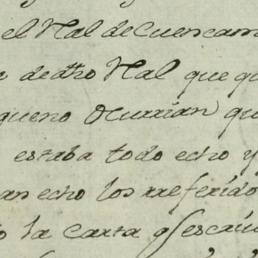 el Rl de Cuencam
de dho Rl que qu
queno Ocurrian qu
estaba todo echo y
an echo los rreferido
la Carta q̃ escriu